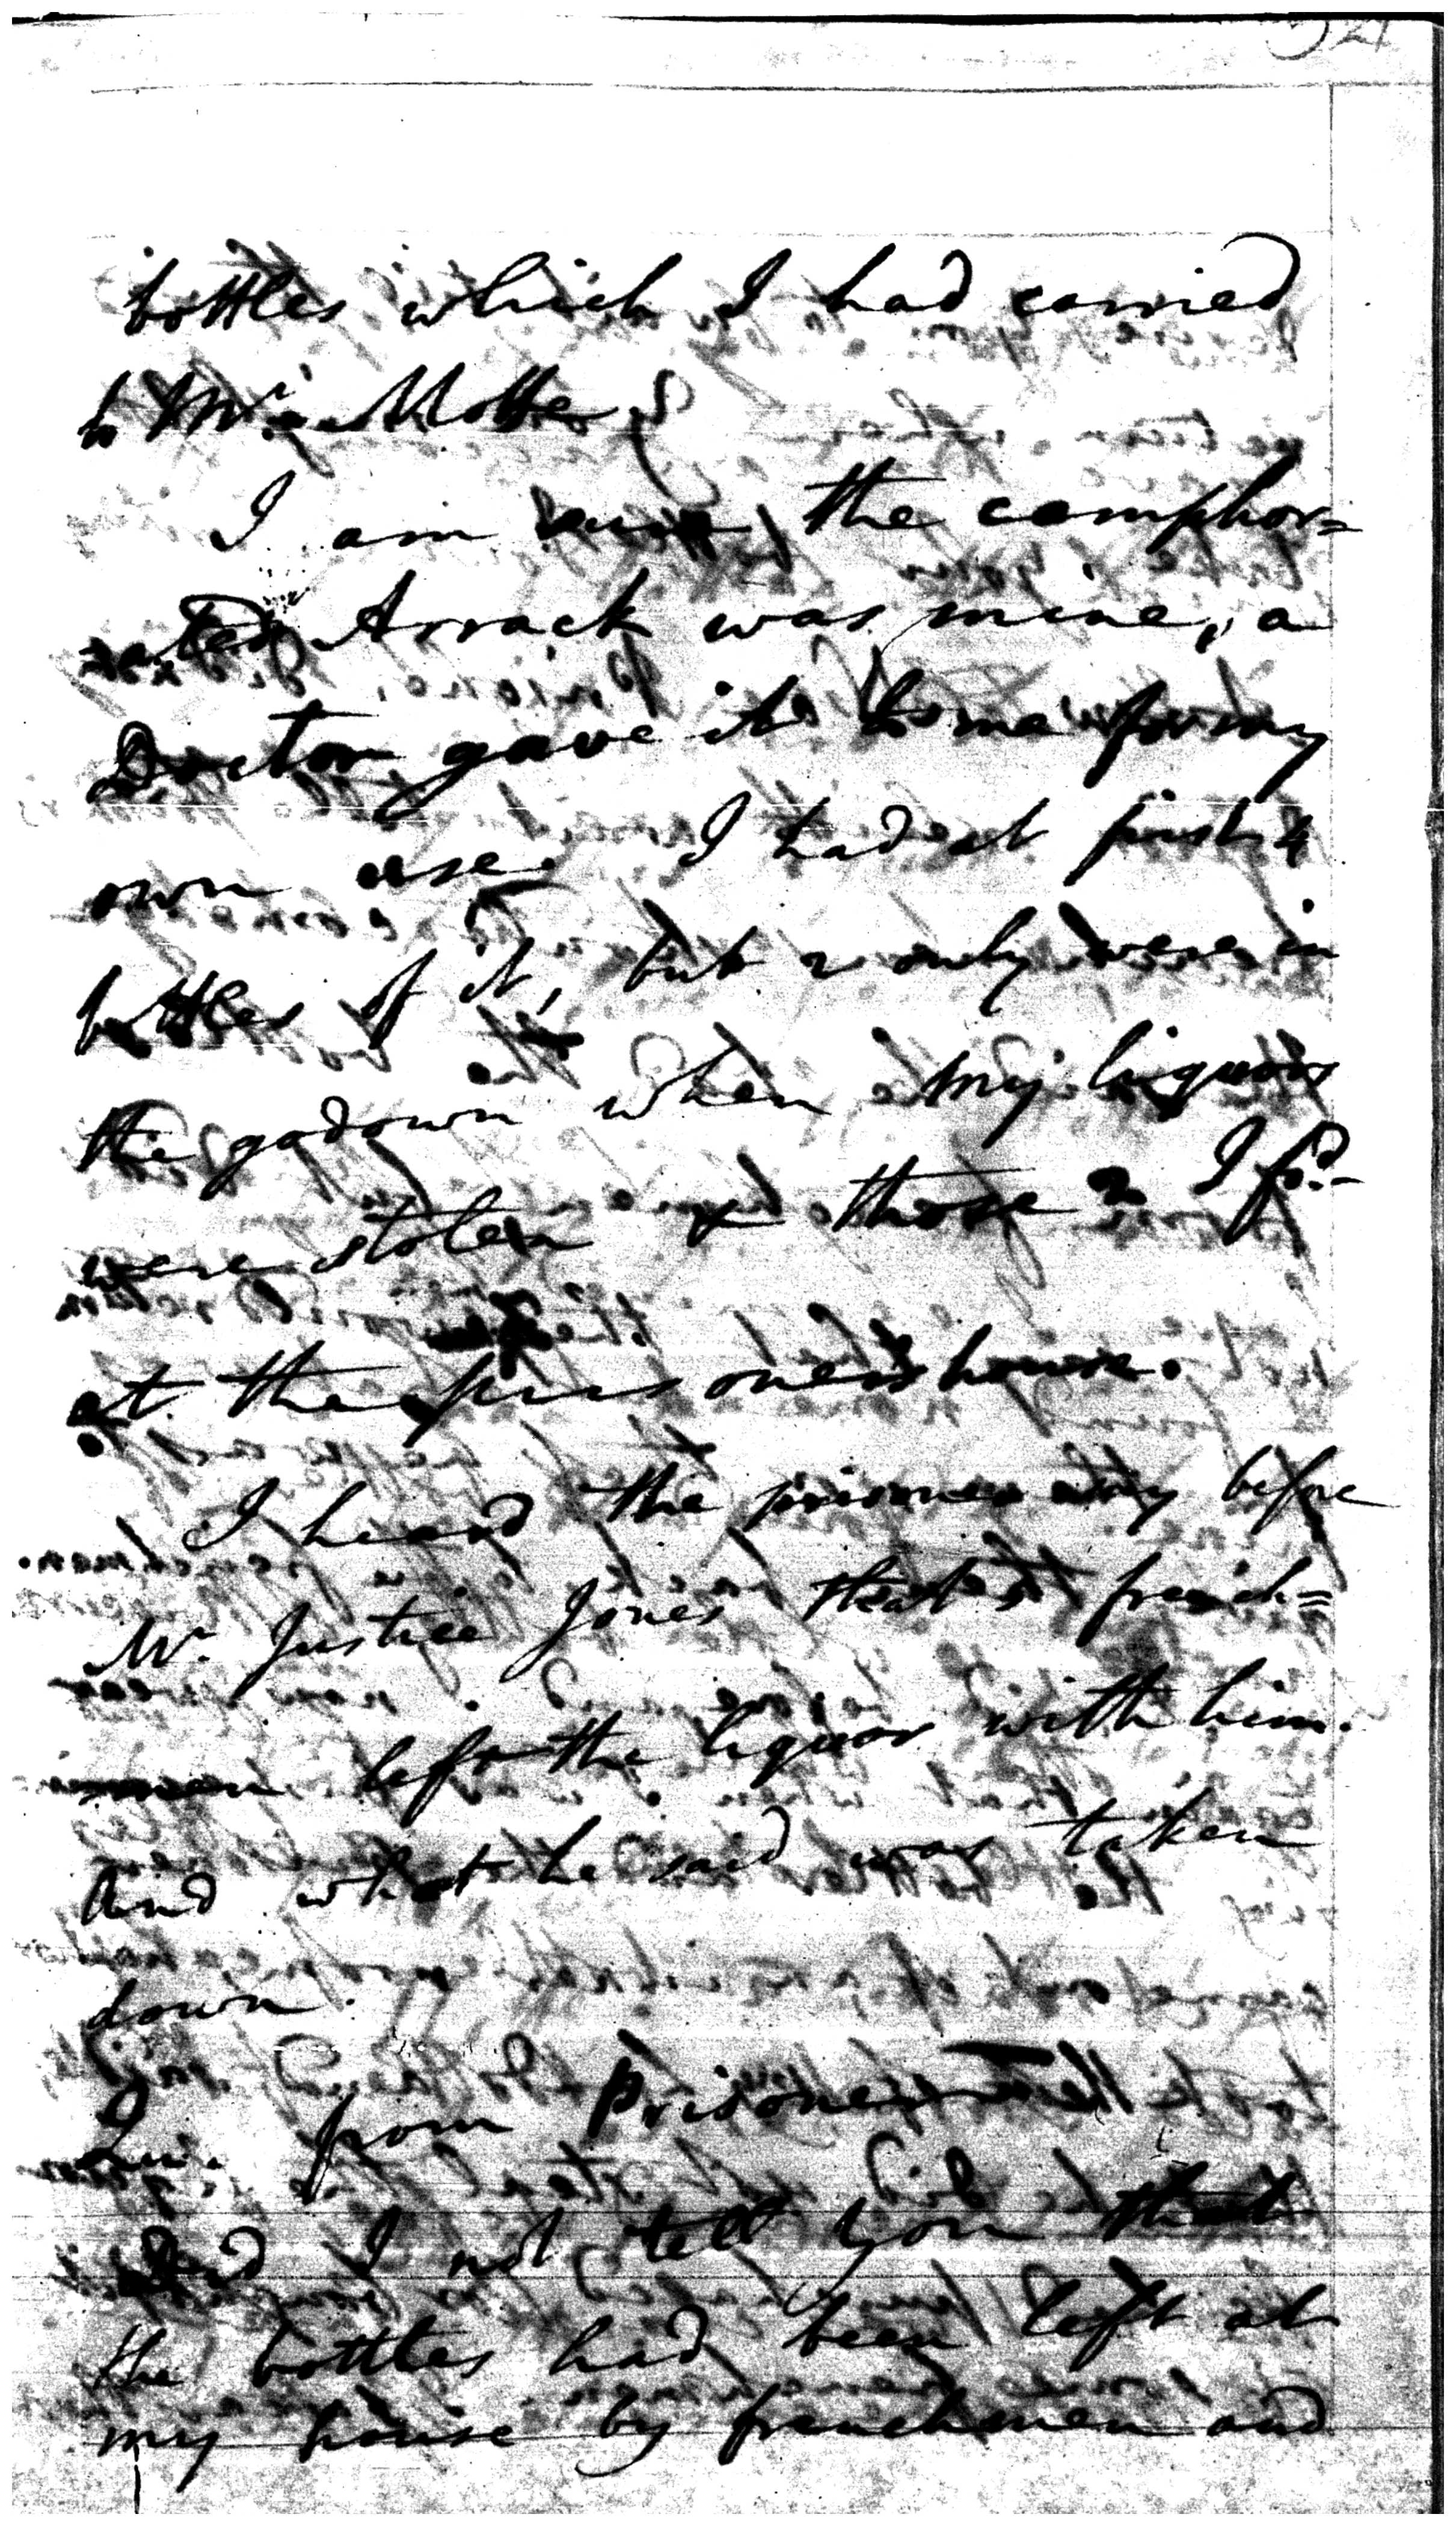 bottles which I had carried
to Mr. Motte.
I am sure the camphor=
ated Arrack was mine, a
Doctor gave it to me for my
own use. I had at first 4
bottles of it, but 2 only were in
the godown when my liquors
were stolen & those 2 I fd.
at the prisoners house.
I heard the prisoner say before
Mr. Justice Jones that french=
men left the liquor with him.
And what he said was taken
down.
Qu. from Prisoner
Did I not tell you that
the bottles had been left at
my house by frenchmen and